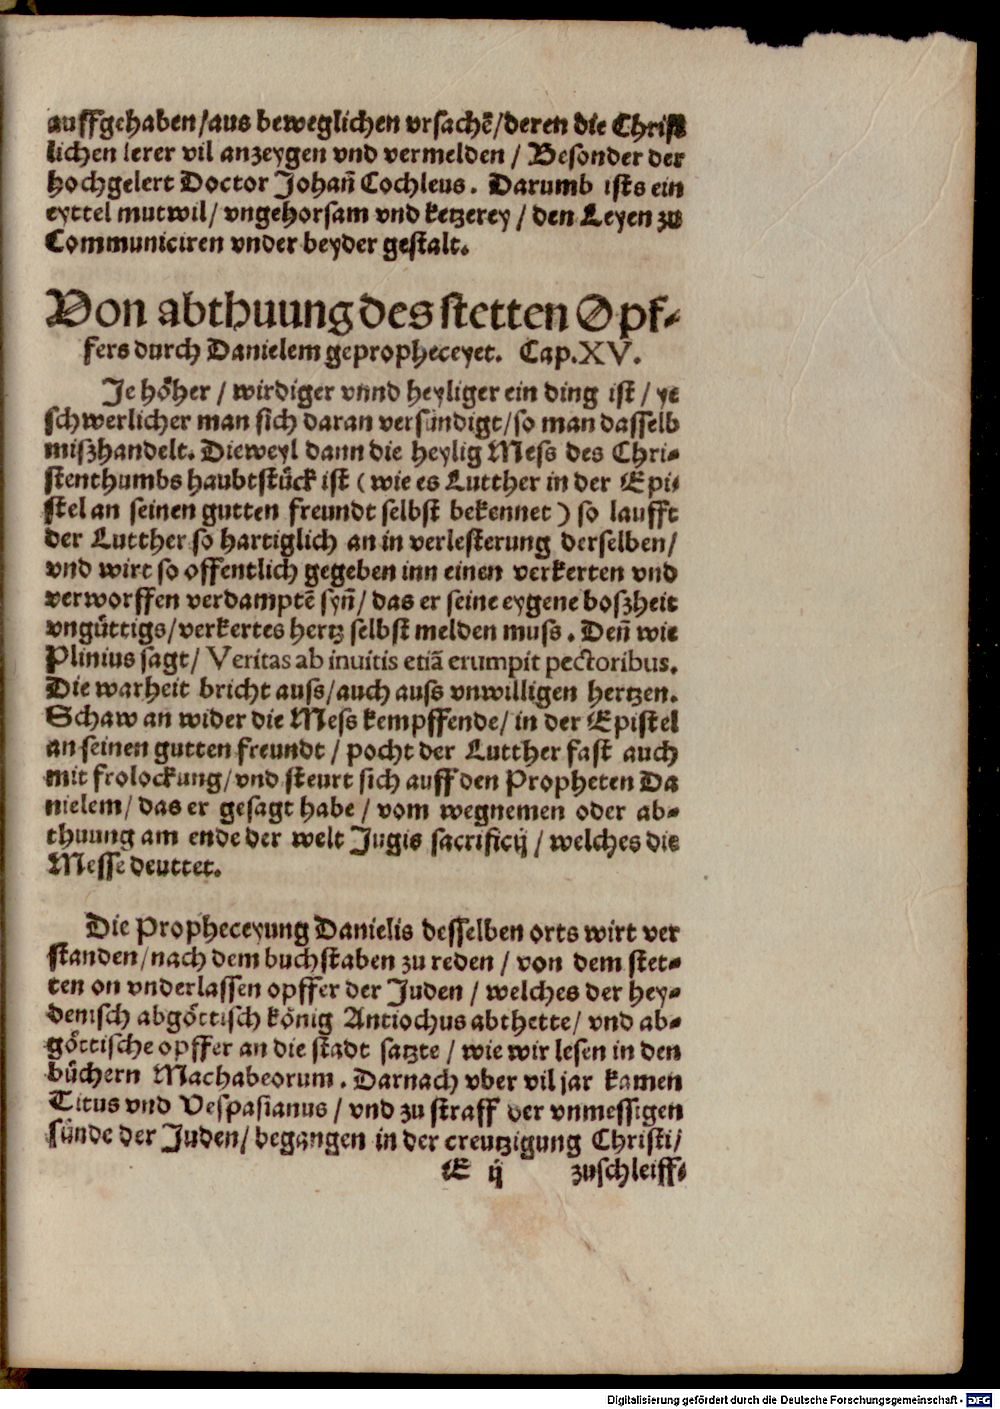 auffgehaben/aus beweglichen vrsachẽ/deren die Christ
lichen lerer vil anzeygen vnd vermelden / Besonder der
hochgelert Doctor Johañ Cochleus. Darumb ists ein
eyttel mutwil/ vngehorsam vnd ketzerey / den Leyen zů
Communiciren vnder beyder gestalt.
Von abthuung des stetten Opf-
fers durch Danielem gepropheceyet. Cap.XV.
Je hőher / wirdiger vnnd heyliger ein ding ist / ye
schwerlicher man sich daran versündigt/so man dasselb
miszhandelt. Dieweyl dann die heylig Mess des Chri-
stenthumbs haubtstűck ist ( wie es Lutther in der Epi-
stel an seinen gutten freundt selbst bekennet ) so laufft
der Lutther so hartiglich an in verlesterung derselben/
vnd wirt so offentlich gegeben inn einen verkerten vnd
verworffen verdamptẽ syñ/ das er seine eygene boszheit
vngűttigs/verkertes hertz selbst melden muss. Deñ wie
Plinius sagt/ Veritas ab inuitis etiã erumpit pectoribus.
Die warheit bricht auss/auch auss vnwilligen hertzen.
Schaw an wider die Mess kempffende/ in der Epistel
an seinen gutten freundt / pocht der Lutther fast auch
mit frolockung/vnd steurt sich auff den Propheten Da
nielem/ das er gesagt habe / vom wegnemen oder ab-
thuung am ende der welt Jugis sacrificij / welches die
Messe deuttet.
Die Propheceyung Danielis desselben orts wirt ver
standen/nach dem buchstaben zu reden / von dem stet-
ten on vnderlassen opffer der Juden / welches der hey-
denisch abgőttisch kőnig Antiochus abthette/ vnd ab-
gőttische opffer an die stadt satzte / wie wir lesen in den
bűchern Machabeorum. Darnach vber vil jar kamen
Titus vnd Vespasianus / vnd zu straff der vnmessigen
sűnde der Juden/ begangen in der creutzigung Christi/
E ij zuschleiff-
Digitalisierung gefördert durch die Deutsche Forschungsgemeinschaft - DFG